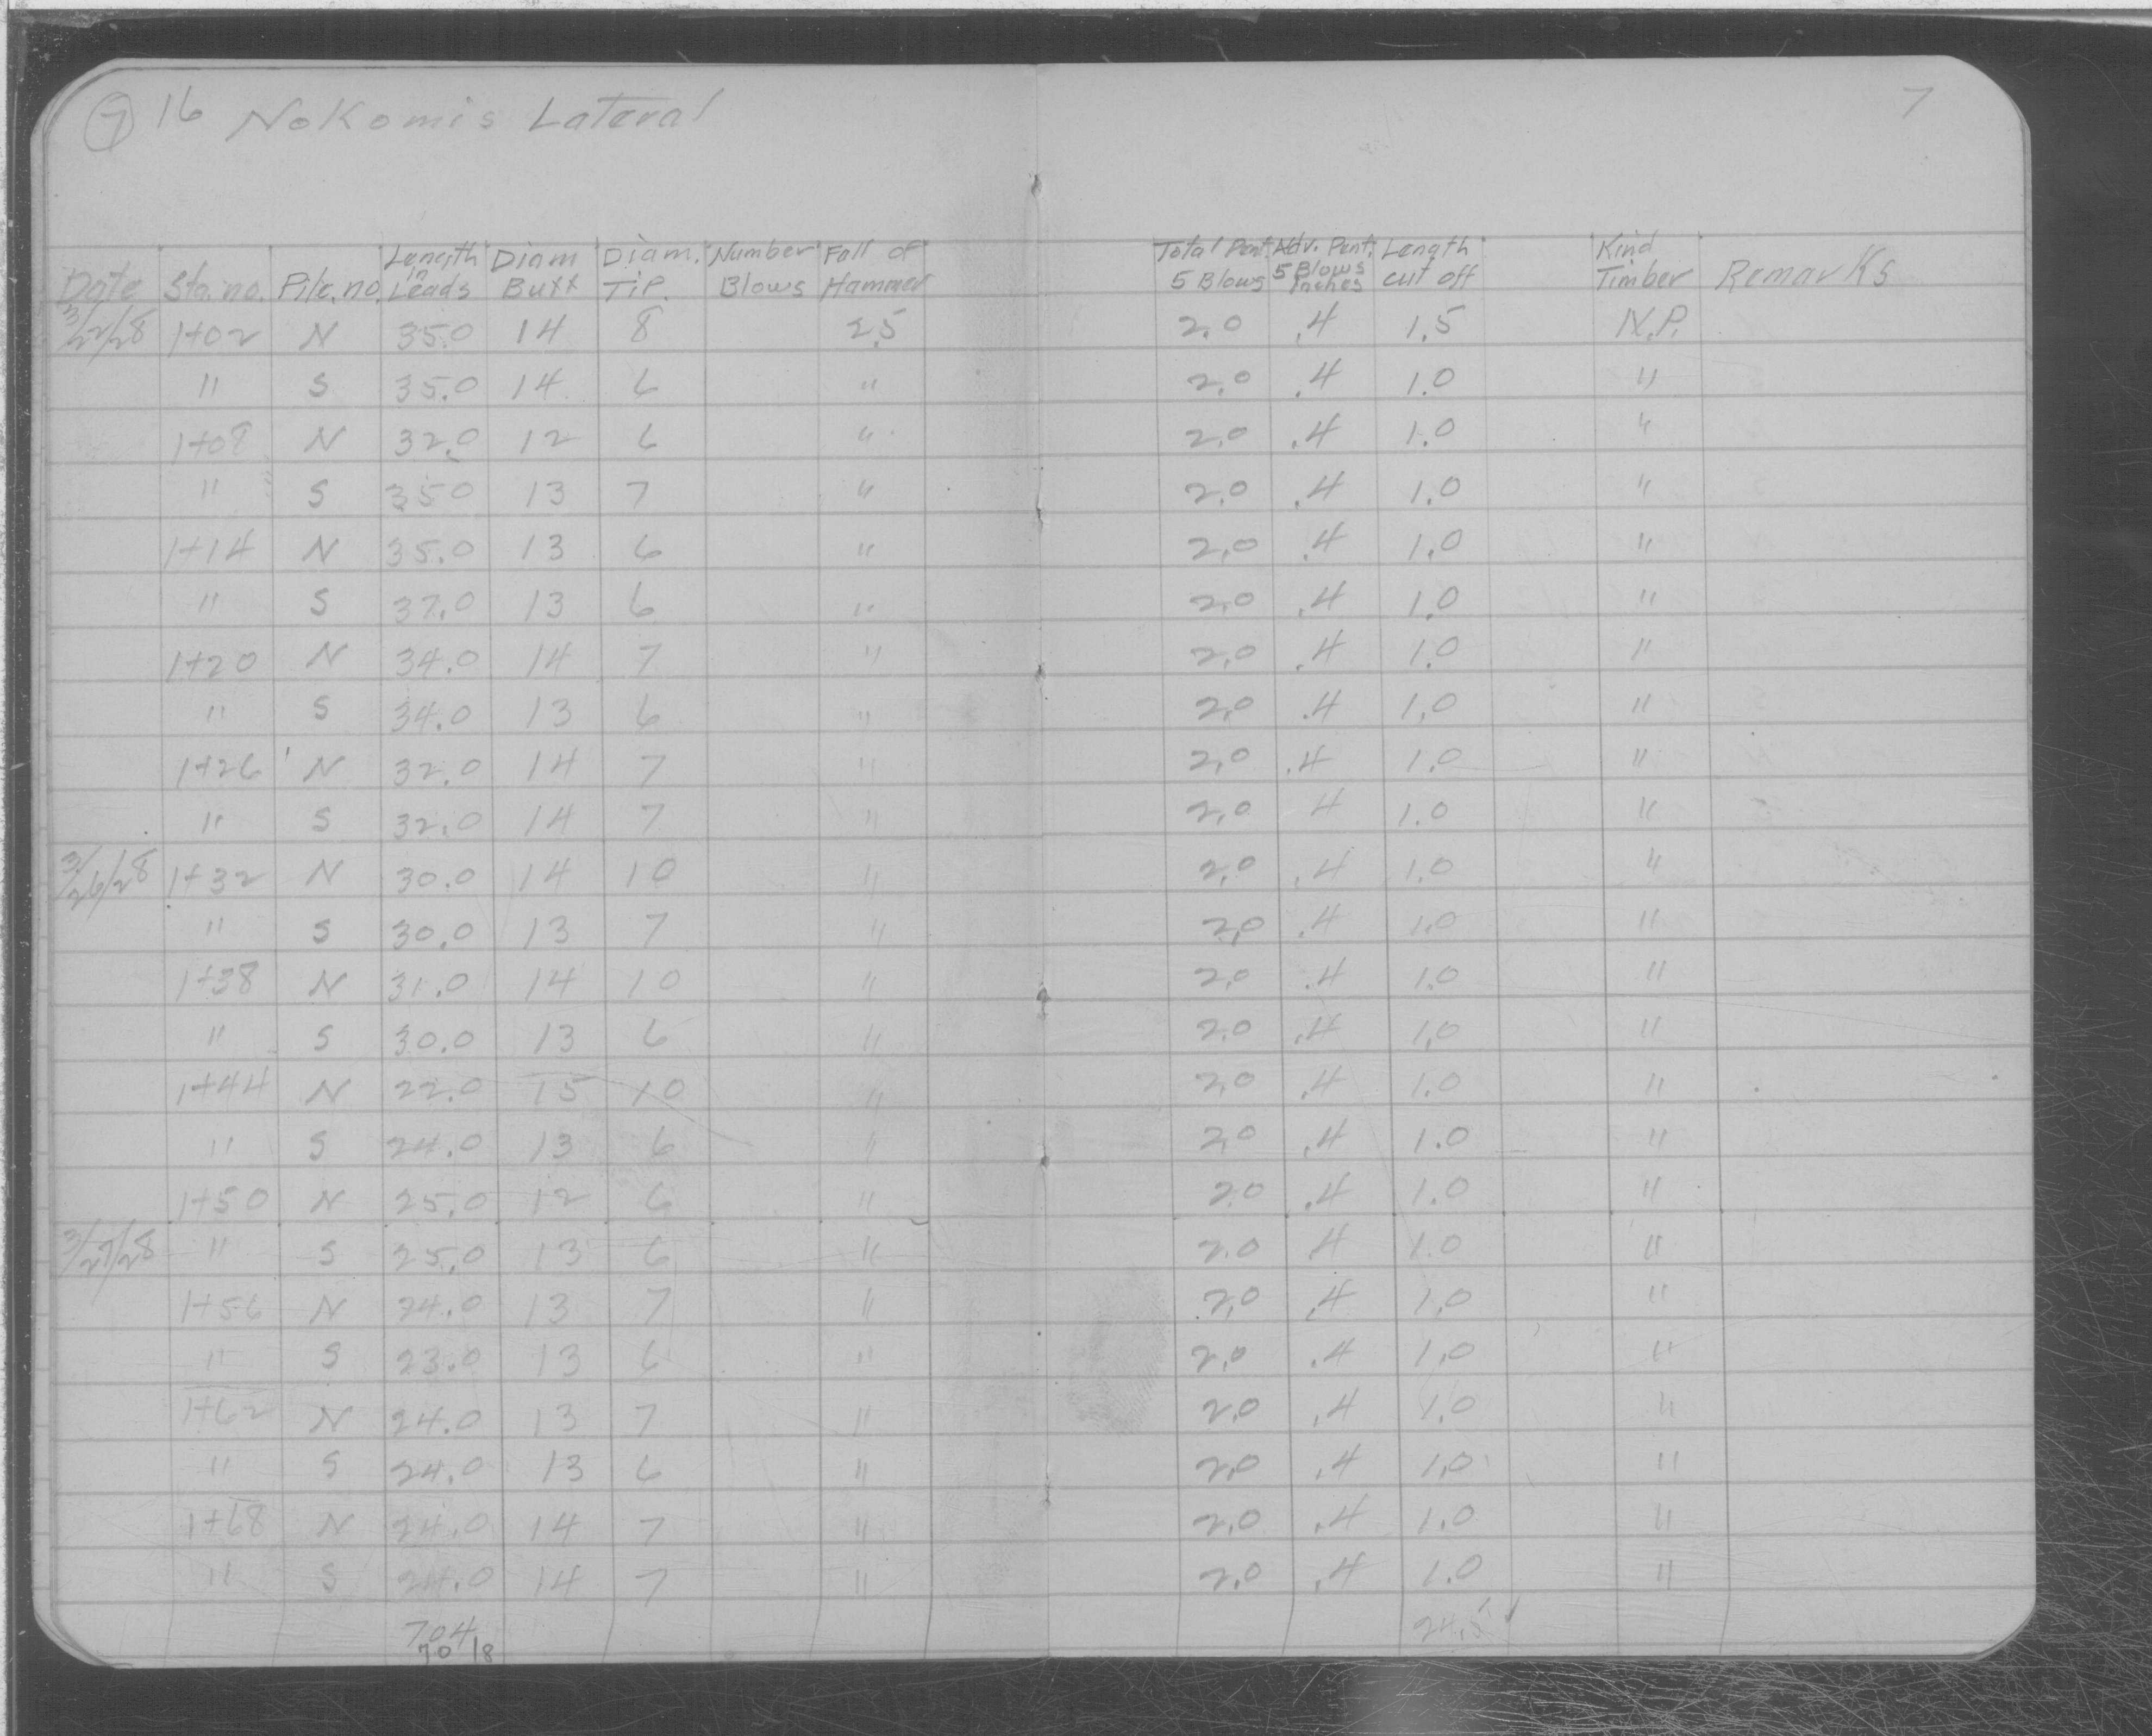 7 16 Nokomis Lateral 7
Date Sta. no. Pile. no. Length in Leads Diam Butt Diam. Tip. Number Blows Fall of Hammer Total Pent. 5 Blows Adv. Pent. 5 Blows Inches Length cut off Kind Timber Remarks
3/22/28 1+02 N 35.0 14 8 2.5 2.0 .4 1.5 N.P.
" S 35.0 14 6 " 2.0 .4 1.0 "
1+08 N 32.0 12 6 " 2.0 .4 1.0 "
" S 35.0 13 7 " 2.0 .4 1.0 "
1+14 N 35.0 13 6 " 2.0 .4 1.0 "
" S 37.0 13 6 " 2.0 .4 1.0 "
1+20 N 34.0 14 7 " 2.0 .4 1.0 "
" S 34.0 13 6 " 2.0 .4 1.0 "
1+26 N 32.0 14 7 " 2.0 .4 1.0 "
" S 32.0 14 7 " 2.0 4 1.0 "
3/26/28 1+32 N 30.0 14 10 " 2.0 .4 1.0 "
" S 30.0 13 7 " 2.0 .4 1.0 "
1+38 N 31.0 14 10 " 2.0 .4 1.0 "
" S 30.0 13 6 " 2.0 .4 1.0 "
1+44 N 22.0 15 10 " 2.0 .4 1.0 "
" S 24.0 13 6 " 2.0 .4 1.0 "
1+50 N 25.0 12 6 " 2.0 .4 1.0 "
3/27/28 " S 25.0 13 6 " 2.0 .4 1.0 "
1+56 N 24.0 13 7 " 2.0 .4 1.0 "
" S 23.0 13 6 " 2.0 .4 1.0 "
1+62 N 24.0 13 7 " 2.0 .4 1.0 "
" S 24.0 13 6 " 2.0 .4 1.0 "
1+68 N 24.0 14 7 " 2.0 .4 1.0 "
" S 24.0 14 7 " 2.0 .4 1.0 "
704 24.5